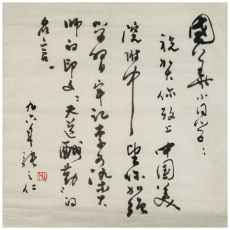 小同学：
祝贺你考上中国美
院附中，望你加强
学习牢记李可染大
师的印文：“天道酬勤”的
名言。